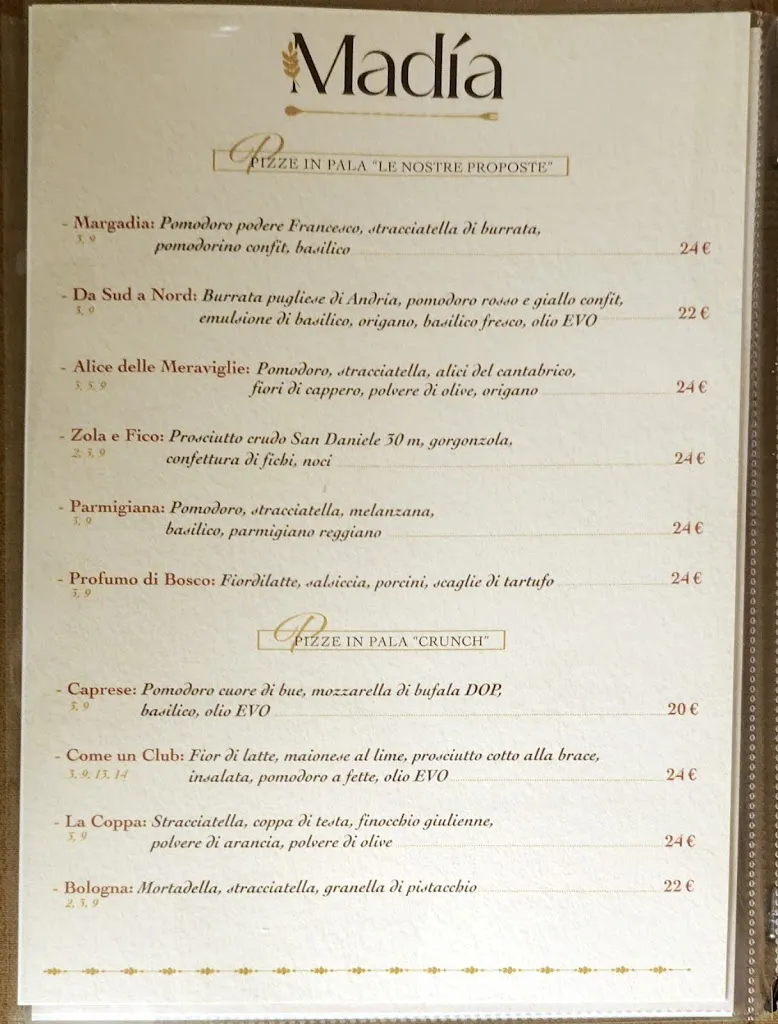 Madía
PIZZE IN PALA "LE NOSTRE PROPOSTE"
- Margadia: Pomodoro podere Francesco, stracciatella di burrata,
3, 9
pomodorino confit, basilico 24 €
- Da Sud a Nord: Burrata pugliese di Andria, pomodoro rosso e giallo confit,
3, 9
emulsione di basilico, origano, basilico fresco, olio EVO 22 €
- Alice delle Meraviglie: Pomodoro, stracciatella, alici del cantabrico,
3, 5, 9
fiori di cappero, polvere di olive, origano 24 €
- Zola e Fico: Prosciutto crudo San Daniele 30 m, gorgonzola,
2, 3, 9
confettura di fichi, noci 24 €
- Parmigiana: Pomodoro, stracciatella, melanzana,
3, 9
basilico, parmigiano reggiano 24 €
- Profumo di Bosco: Fiordilatte, salsiccia, porcini, scaglie di tartufo 24 €
3, 9
PIZZE IN PALA "CRUNCH"
- Caprese: Pomodoro cuore di bue, mozzarella di bufala DOP,
3, 9
basilico, olio EVO 20 €
- Come un Club: Fior di latte, maionese al lime, prosciutto cotto alla brace,
3, 9, 13, 14
insalata, pomodoro a fette, olio EVO 24 €
- La Coppa: Stracciatella, coppa di testa, finocchio giulienne,
3, 9
polvere di arancia, polvere di olive 24 €
- Bologna: Mortadella, stracciatella, granella di pistacchio 22 €
2, 3, 9